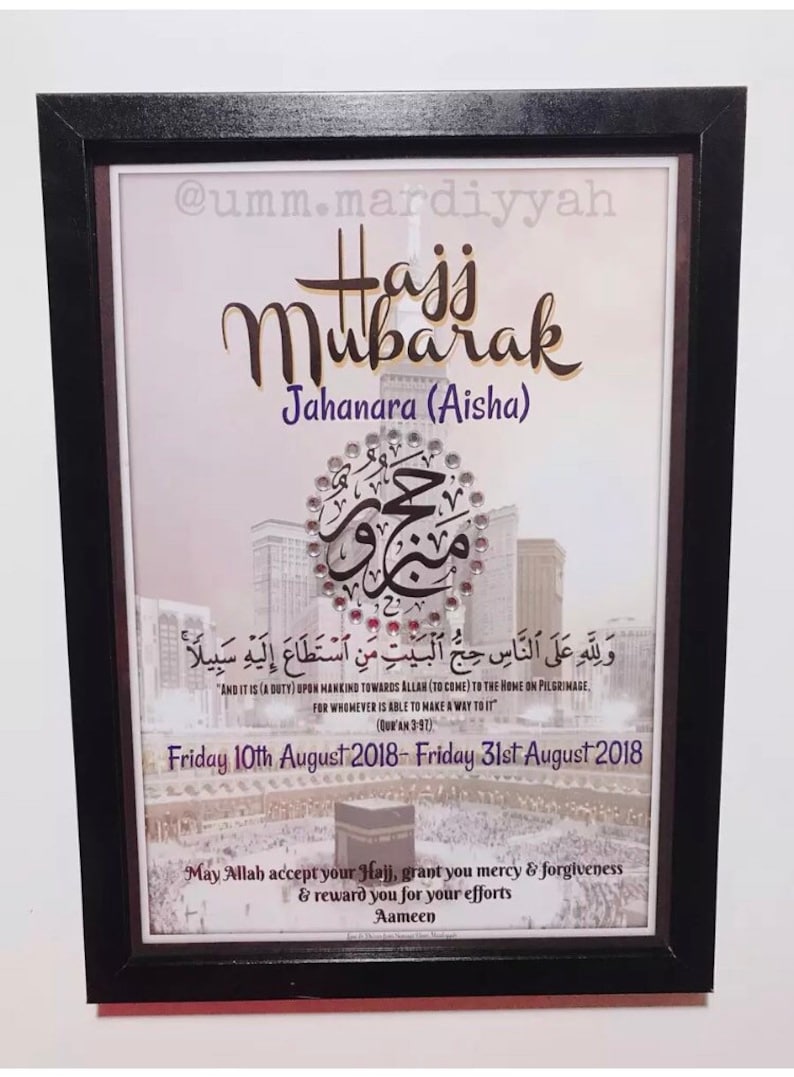 @umm.mardiyyah
Hajj
Mubarak
Jahanara (Aisha)
حج
مبرور
وَلِلَّهِ عَلَى ٱلنَّاسِ حِجُّ ٱلْبَيْتِ مَنِ ٱسْتَطَاعَ إِلَيْهِ سَبِيلًا ۚ
"And it is (a duty) upon mankind towards Allah (to come) to the Home on Pilgrimage,
for whomever is able to make a way to it"
(Qur'an 3:97).
Friday 10th August 2018- Friday 31st August 2018
May Allah accept your Hajj, grant you mercy & forgiveness
& reward you for your efforts
Aameen